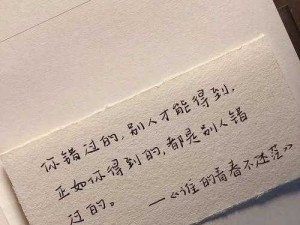 你错过的，别人才能得到，
正如你得到的，都是别人错
过的。
——《谁的青春不迷茫》